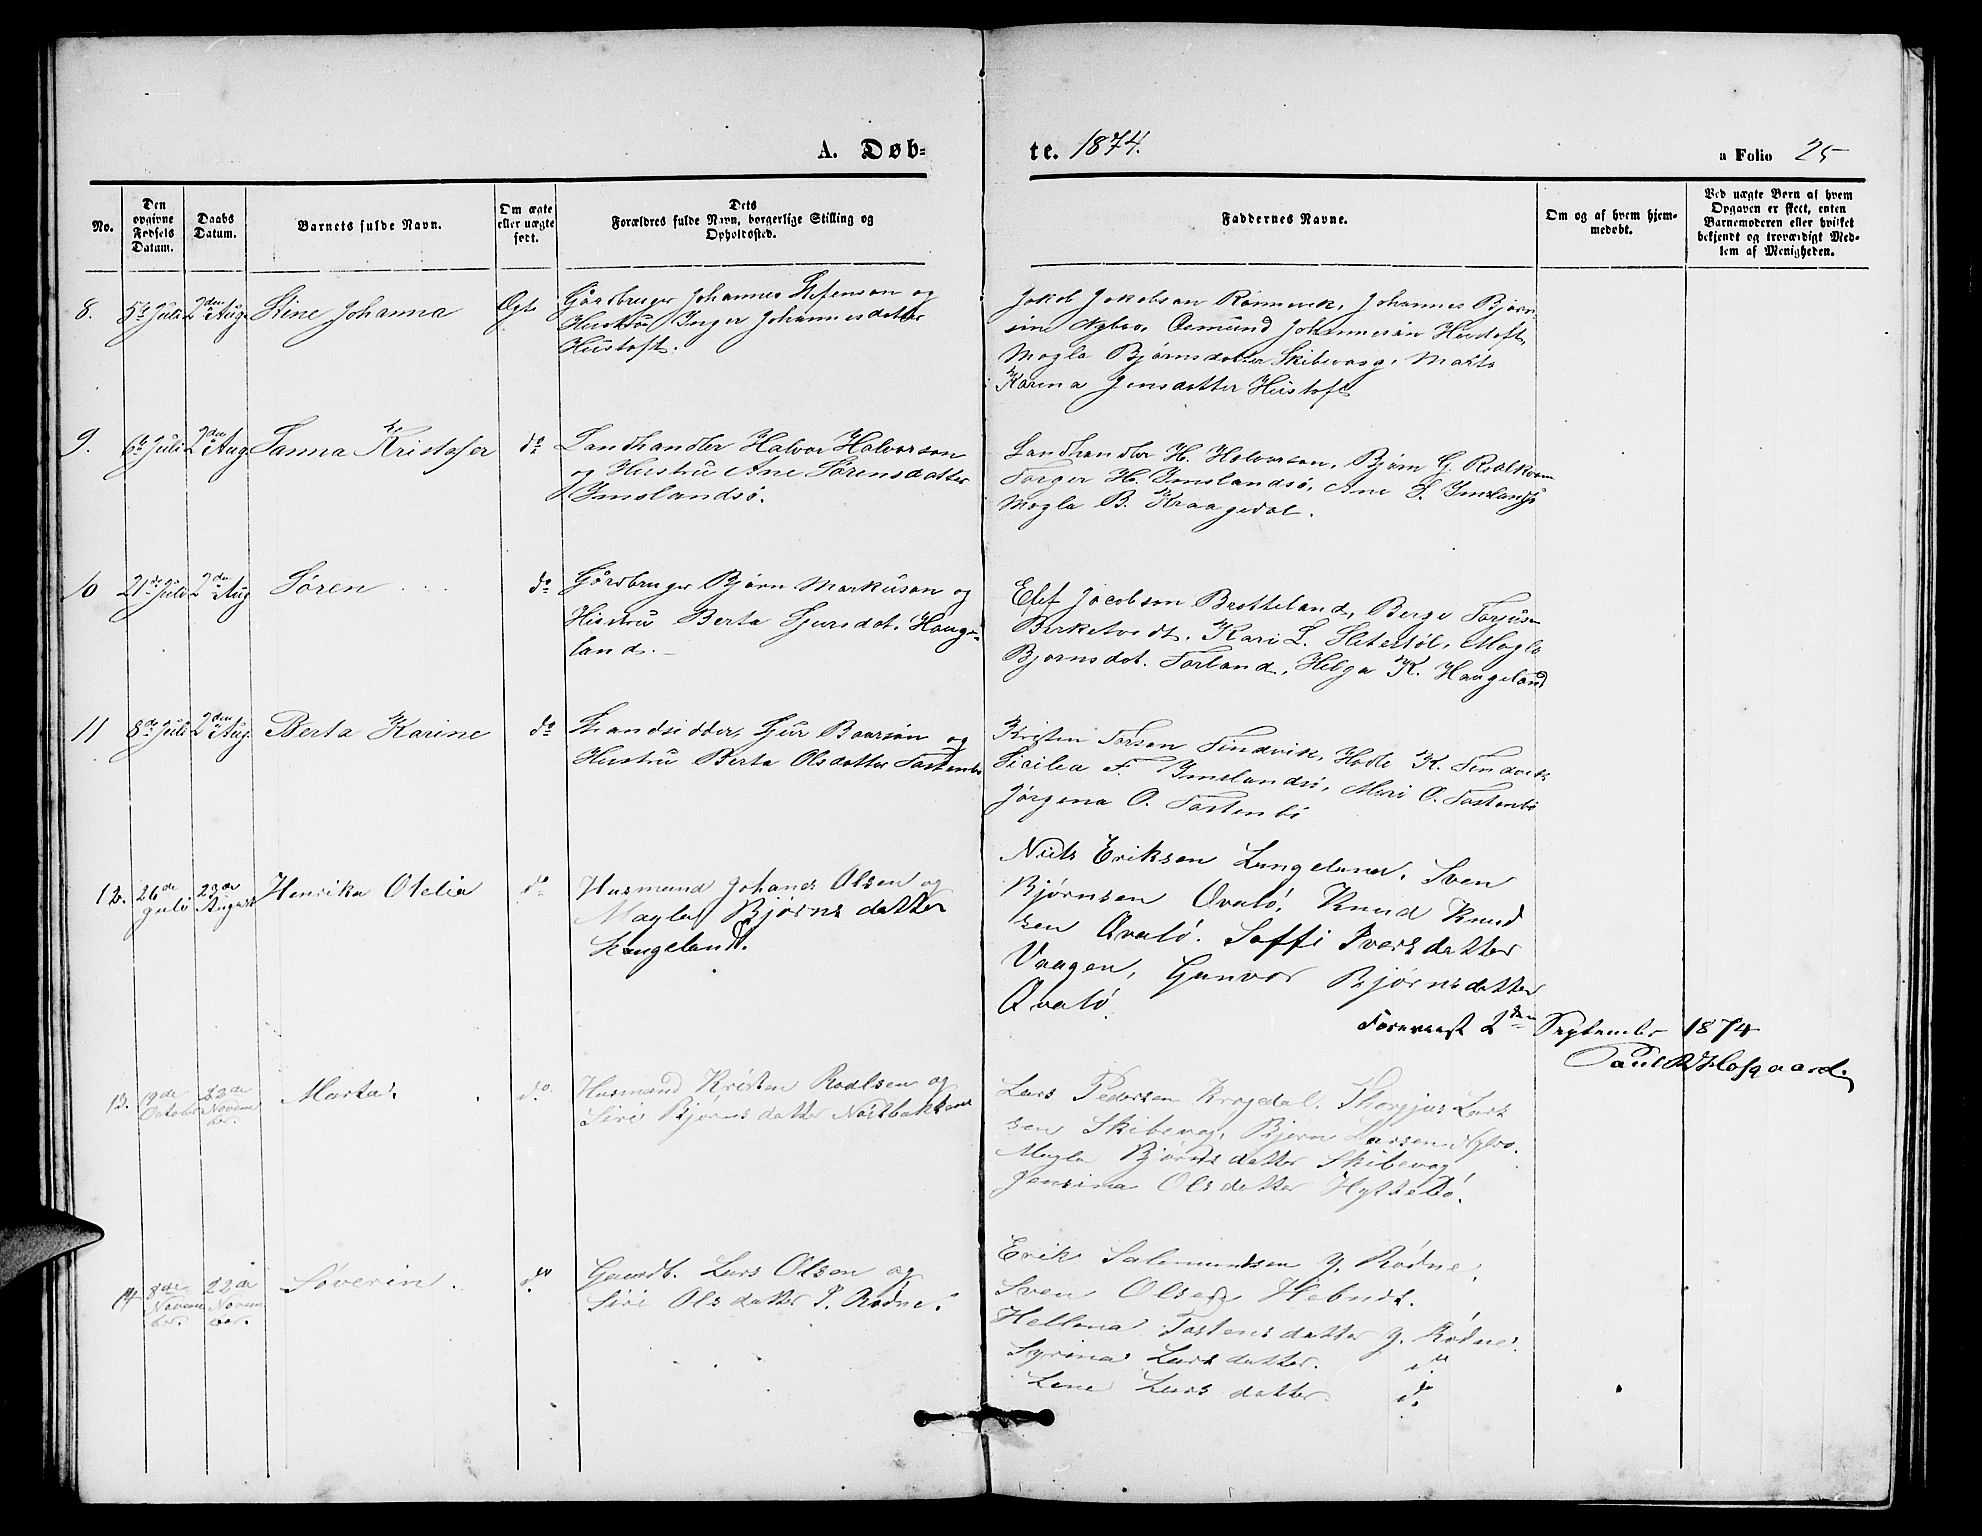 A. Døb-
te. 1874.
a Folio 25
No.
Den opgivne Fødsels Datum.
Daabs Datum.
Barnets fulde Navn.
Om ægte eller uægte født.
Dets Forældres fulde Navn, borgerlige Stilling og Opholdssted.
Faddernes Navne.
Om og af hvem hjemmedøbt.
Ved uægte Børn af hvem Opgaven er skeet, enten Barnemoderen eller hvilket bekjendt og troværdigt Medlem af Menigheden.
8. 5te Juli 2den Aug. Stine Johanna Ægt
Gårdbruger Johannes Stefenson og
Hustru Inger Johannesdatter
Hustoft.
Jakob Jakobson Rønnevik, Johannes Bjørn
søn Nybro, Osmund Johannesøn Hustoft,
Magla Bjørnsdatter Skibevaag, Marta
Karina Jensdatter Hustoft
9. 6te Juli 2den Aug. Sanna Kristofer do
Landhandler Halvor Halvorson
og Hustru Ane Sørensdatter
Imslandsø.
Landhandler H. Halvorson, Bjørn G. Roalkvam
Torger H. Imslandsø, Ane S. Imslandsø
Magla B. Kraagedal.
10 21de Juli 2den Aug Søren do
Gårdbruger Bjørn Markuson og
Hustru Berta Sjursdot. Hauge-
land.
Elef Jacobson Brotteland, Berge Torjuson
Birketvedt, Kari L. Sletestøl, Magla
Bjørnsdot. Førland, Helga K. Haugeland
11 8de Juli 2den Aug. Berta Karine do
Strandsidder, Sjur Baarsøn og
Hustru Berta Olsdatter Tostenbø
Kristen Torson Tindvik, Hodle K. Tindvik
Sicilea T. Imslandsø, Mari O. Tostenbø
Jørgena O. Tostenbø
12. 26de Juli 23de August Henrika Otelia do
Husmand Johanes Olsen og
Magla Bjørns datter
Langeland.
Niels Eriksen Langeland, Sven
Bjørnsen Øvalö, Knud Knud
sen Øvalö. Soffi Ivers datter
Vaagen, Gunvor Bjørnsdatter
Øvalö.
Forevaist 2den September 1874
Paul B Hofgaard.
13. 19de October 22de November. Marta. do.
Husmand Kristen Roalsen og
Siri Bjørns datter Nordbakken
Lars Pedersen Krogedal, Thorgjus Lars
sen Skibevag, Bjørn Larsen Nybro.
Magla Bjørns datter Skibevag
Jensina Ols datter Hyttebö.
14 8de November. 22de November. Søverin. do
Gaardb. Lars Olsen og
Siri Ols datter I. Rødne.
Erik Salemundsen Y. Rødne,
Sven Olsen Hebnes.
Hellena Tostens datter Y. Rødne.
Syrina Lars datter. do
Lena Lars datter. do.